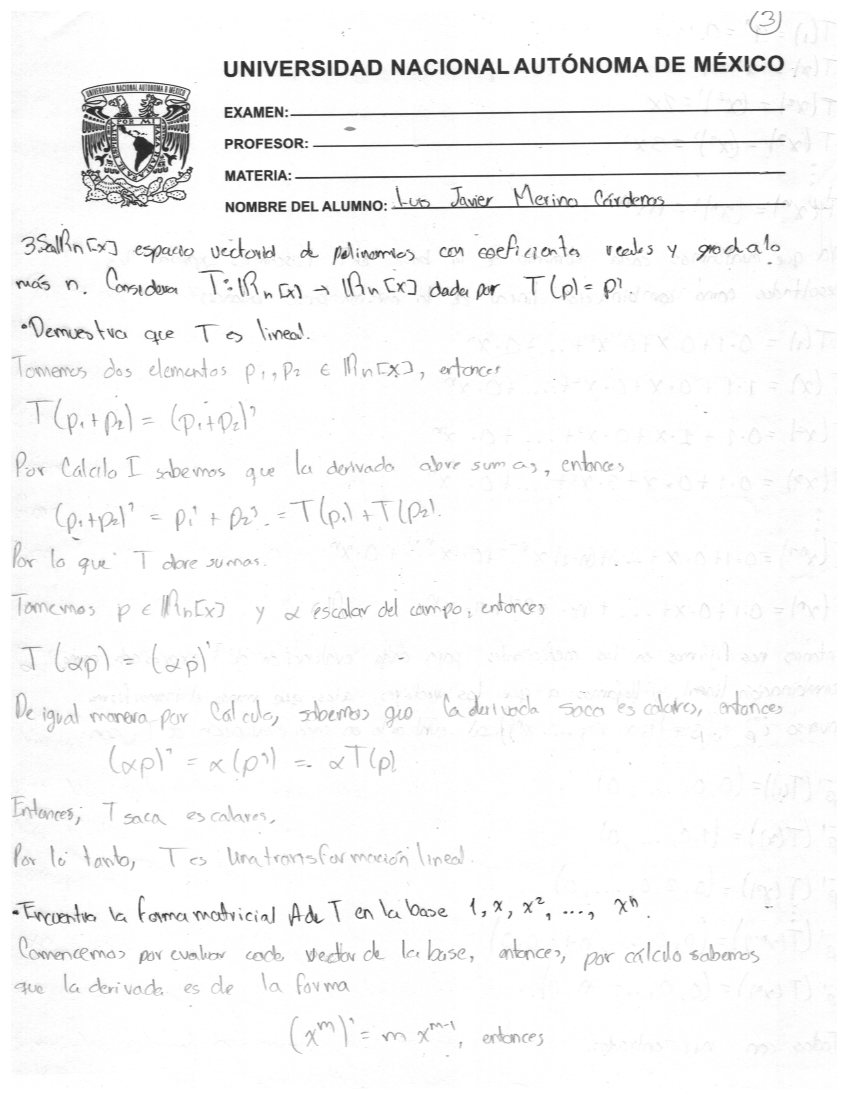 (3)
UNIVERSIDAD NACIONAL AUTÓNOMA DE MÉXICO
EXAMEN:
PROFESOR:
MATERIA:
NOMBRE DEL ALUMNO: Luis Javier Merino Cárdenas
3 Sea ℝn[x] espacio vectorial de polinomios con coeficientes reales y grado a lo
más n. Considera T: ℝn[x] → ℝn[x] dada por T(p) = p'.
• Demuestra que T es lineal.
Tomemos dos elementos p₁, p₂ ∈ ℝn[x], entonces
T(p₁+p₂) = (p₁+p₂)'
Por Cálculo I sabemos que la derivada abre sumas, entonces
(p₁+p₂)' = p₁' + p₂' = T(p₁) + T(p₂).
Por lo que T abre sumas.
Tomemos p ∈ ℝn[x] y α escalar del campo, entonces
T(αp) = (αp)'
De igual manera por Cálculo, sabemos que la derivada saca escalares, entonces
(αp)' = α(p') = αT(p)
Entonces, T saca escalares.
Por lo tanto, T es una transformación lineal.
• Encuentra la forma matricial A de T en la base 1, x, x², ..., xⁿ.
Comencemos por evaluar cada vector de la base, entonces, por cálculo sabemos
que la derivada es de la forma
(xᵐ)' = m xᵐ⁻¹, entonces